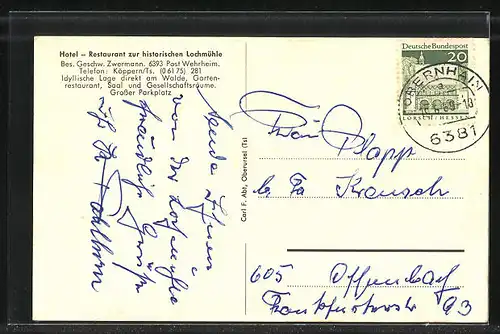 Hotel – Restaurant zur historischen Lochmühle
Bes. Geschw. Zwermann, 6393 Post Wehrheim.
Telefon: Köppern/Ts. (0 61 75) 281
Idyllische Lage direkt am Walde, Garten-
restaurant, Saal und Gesellschaftsräume.
Großer Parkplatz
Sende Ihnen
von der Lochmühle
freundliche Grüße
Ihr
Carl F. Abt, Oberursel (Ts)
Deutsche Bundespost
20
LORSCH / HESSEN
BERNHAIN
6381
Frau Plapp
b. Fa Krausch
605 Offenbach
Frankfurterstr 93